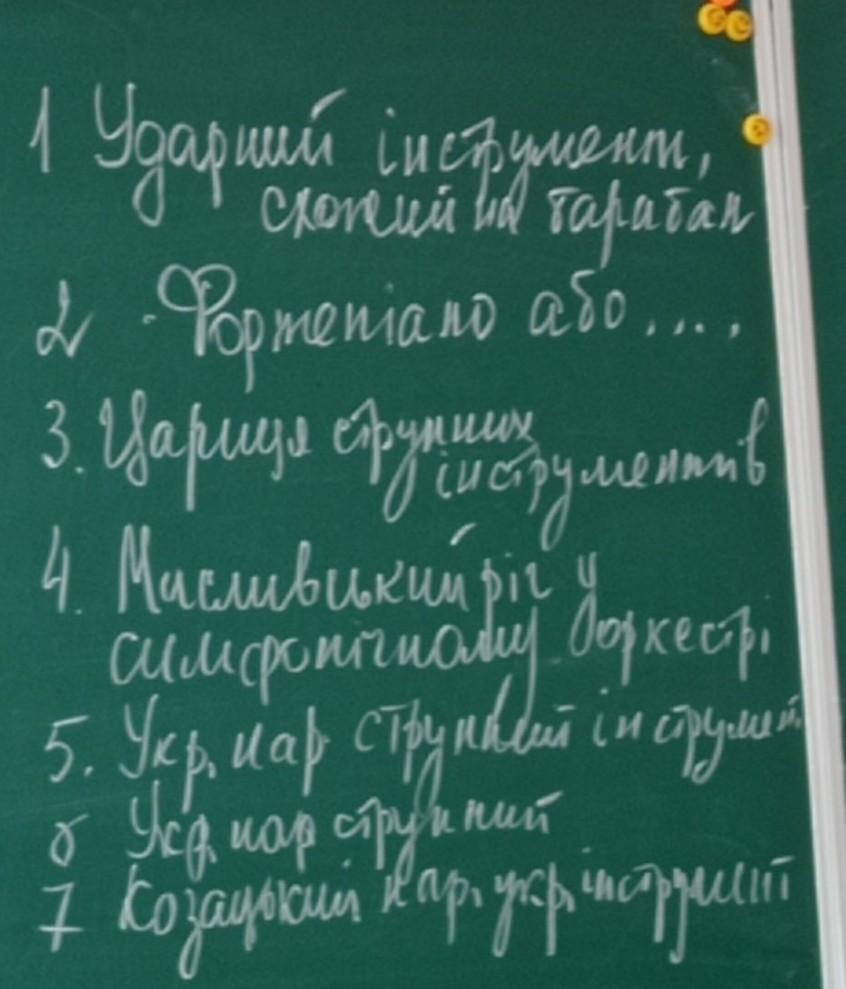 1 Ударний інструмент,
схожий на барабан
2 Фортепіано або....
3. Цариця струнних
інструментів
4. Мисливський ріг у
симфонічному оркестрі
5. Укр. нар струнний інструмент
6 Укр. нар струнний
7 Козацький нар. укр. інструмент